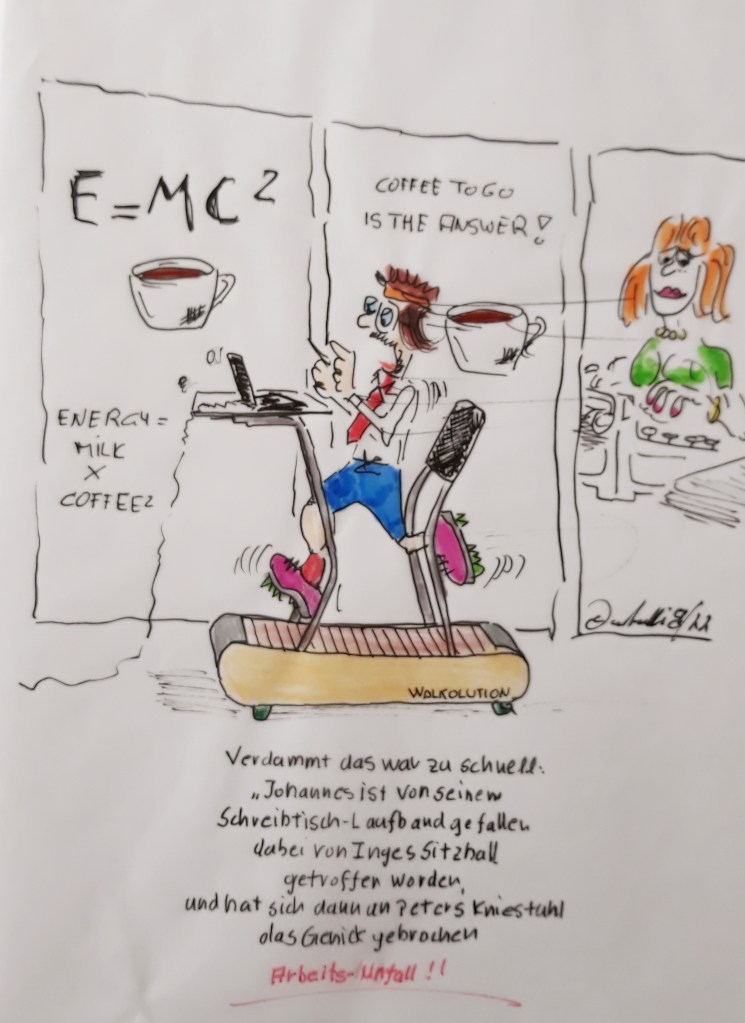 E=MC²
COFFEE TO GO
IS THE ANSWER!
ENERGY=
MILK
X
COFFEE2
WALKOLUTION
Verdammt das war zu schnell:
„Johannes ist von seinem
Schreibtisch-Laufband gefallen
dabei von Inges Sitzball
getroffen worden,
und hat sich dann an Peters Kniestuhl
das Genick gebrochen
Arbeits-Unfall!!